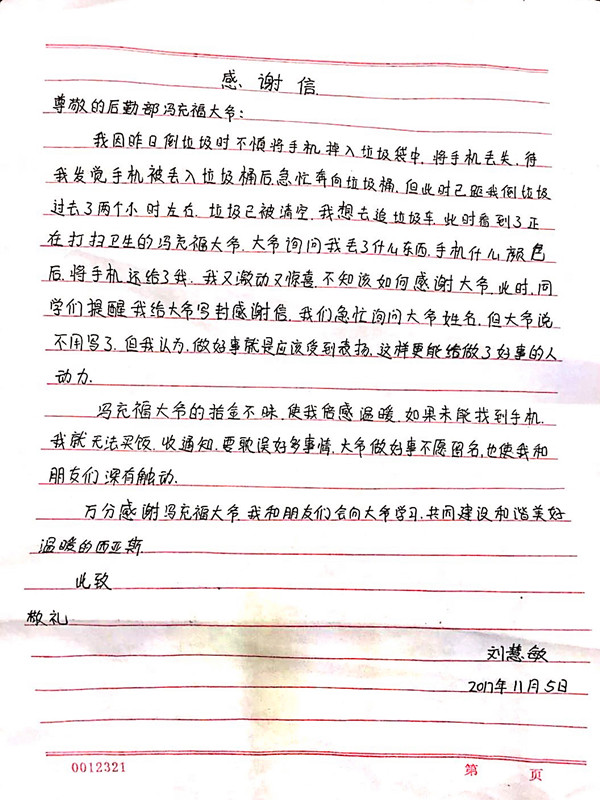 感谢信
尊敬的后勤部冯充福大爷：
我因昨日倒垃圾时不慎将手机掉入垃圾袋中，将手机丢失，待
我发觉手机被丢入垃圾桶后急忙奔向垃圾桶，但此时已距我倒垃圾
过去了两个小时左右，垃圾已被清空，我想去追垃圾车，此时看到了正
在打扫卫生的冯充福大爷，大爷询问我丢了什么东西，手机什么颜色
后，将手机还给了我，我又激动又惊喜，不知该如何感谢大爷，此时，同
学们提醒我给大爷写封感谢信，我们急忙询问大爷姓名，但大爷说
不用写了，但我认为，做好事就是应该受到表扬，这样更能给做了好事的人
动力.
冯充福大爷的拾金不昧，使我倍感温暖，如果未能找到手机，
我就无法买饭，收通知，要耽误好多事情，大爷做好事不愿留名，也使我和
朋友们深有触动.
万分感谢冯充福大爷，我和朋友们会向大爷学习，共同建设和谐美好
温暖的西亚斯.
此致
敬礼
刘慧敏
2017年11月5日
0012321 第 页